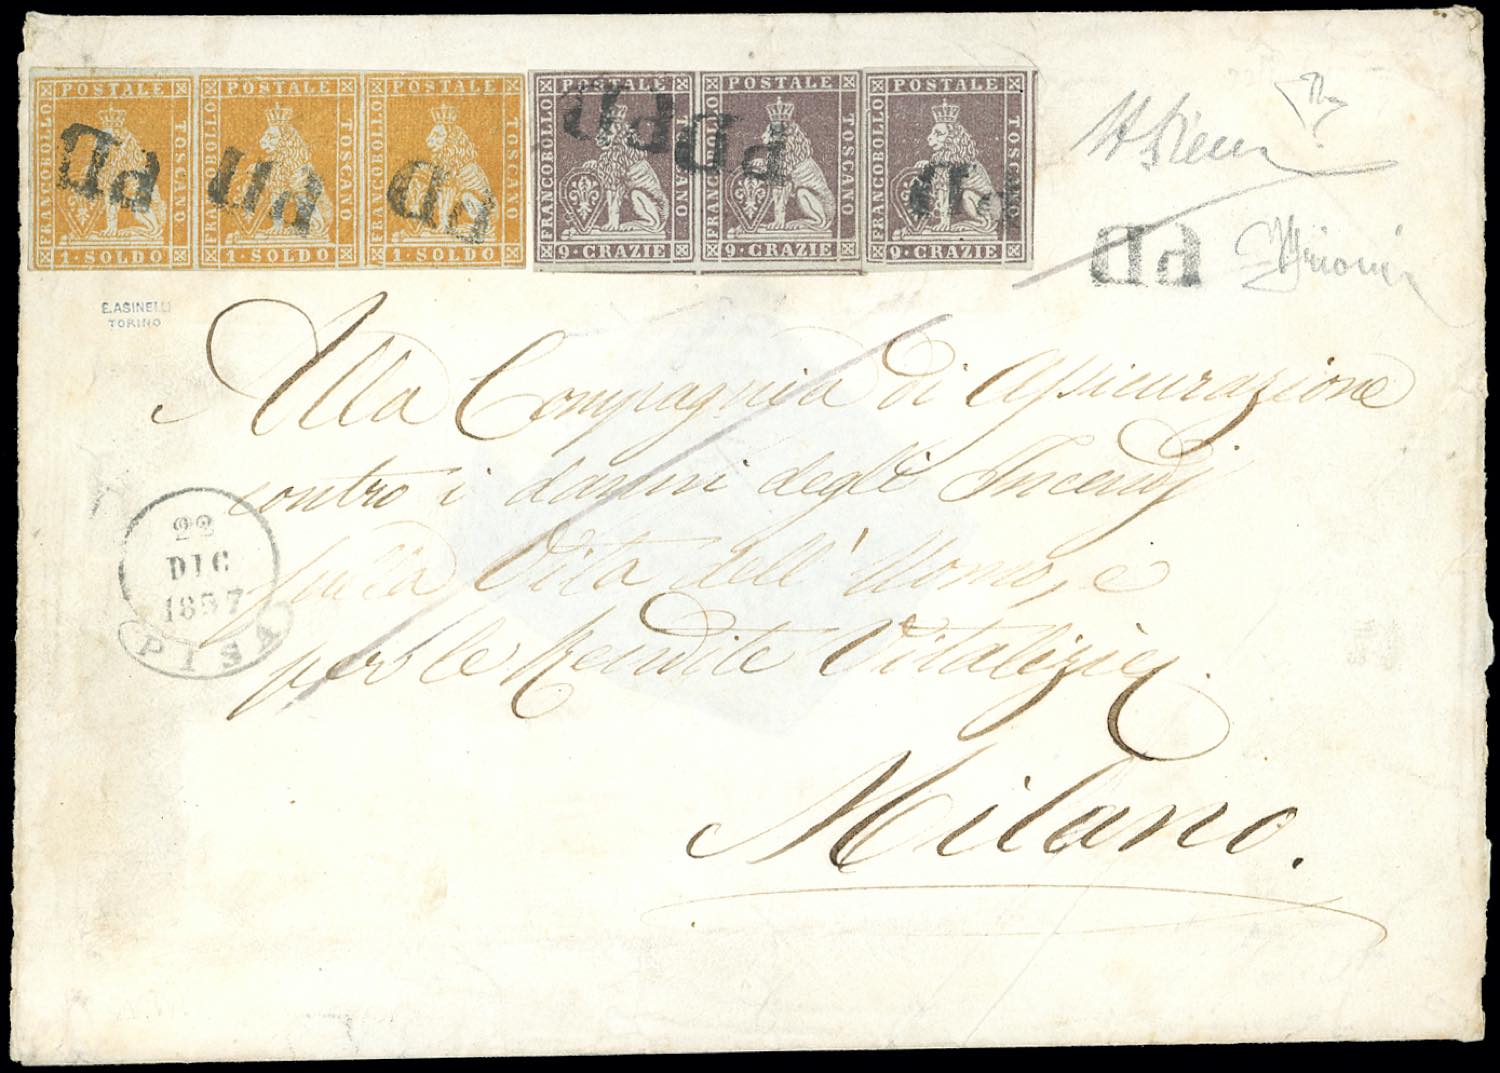 POSTALE POSTALE POSTALE POSTALE POSTALE POSTALE
FRANCOBOLLO TOSCANO FRANCOBOLLO TOSCANO FRANCOBOLLO TOSCANO FRANCOBOLLO TOSCANO FRANCOBOLLO TOSCANO FRANCOBOLLO TOSCANO
PD PD PD PD PD PD
1·SOLDO 1·SOLDO 1·SOLDO 9·CRAZIE 9·CRAZIE 9·CRAZIE
PD
E.ASINELLI
TORINO
Alla Compagnia di Assicurazione
contro i danni degli Incendj
sulla Vita dell' Uomo, e
per le Rendite Vitalizie.
Milano.
22
DIC
1857
PISA